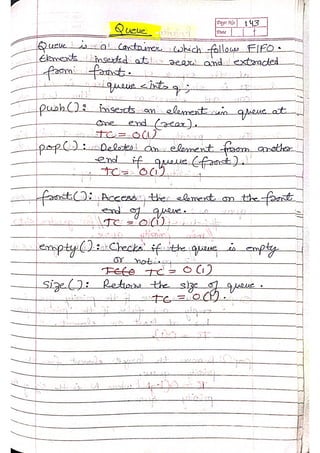 Queue
Page No. 143
Date
Queue is a container which follows FIFO.
elements inserted at rear and extracted
from front.
queue <int> q;
push(): inserts an element in queue at
one end (rear).
TC = O(1)
pop(): Deletes an element from another
end if queue (front).
TC = O(1).
front(): Access the element on the front
end of queue.
TC = O(1)
empty(): Checks if the queue is empty
or not.
TC = O(1)
size(): Return the size of queue.
TC = O(1).